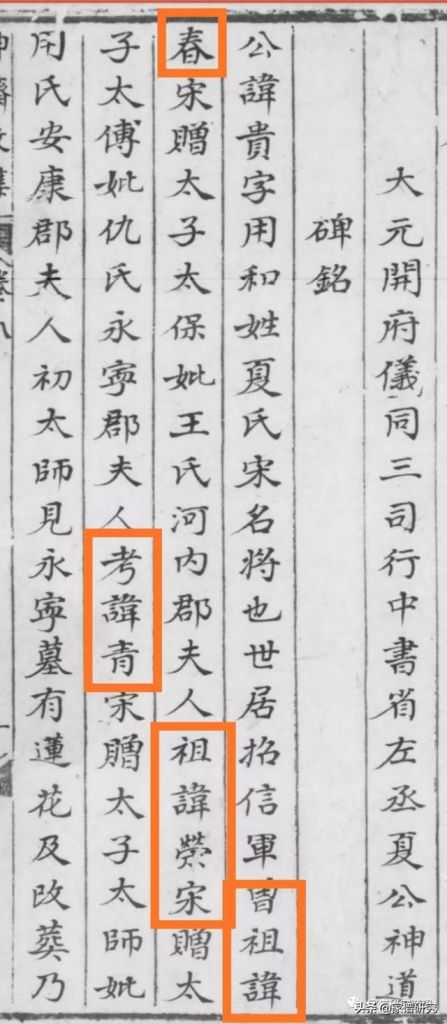 大元開府儀同三司行中書省左丞夏公神道
碑銘
公諱貴字用和姓夏氏宋名將也世居招信軍曽祖諱
春宋贈太子太保妣王氏河内郡夫人祖諱榮宋贈太
子太傅妣仇氏永寧郡夫人考諱青宋贈太子太師妣
周氏安康郡夫人初太師見永寧墓有蓮花及改葬乃
头条 @家谱研究